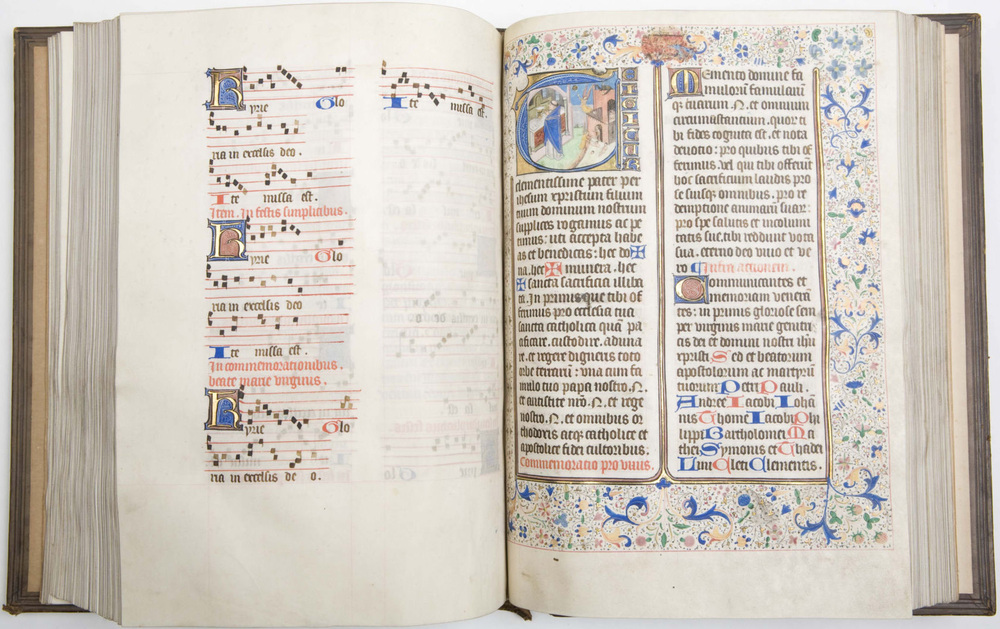 Kyrie Glo
ria in excelsis deo.
Ite missa est.
Item. In festis simplicibus.
Kyrie Glo
ria in excelsis deo
Ite missa est.
In commemorationibus.
beate marie virginis.
Kyrie Glo
ria in excelsis de o.
Ite missa est.
TE IGITUR
clementissime pater per
ihesum xpristum filium
tuum dominum nostrum
supplices rogamus ac pe
timus: uti accepta habe
as et benedicas: hec do✠
na. hec ✠ munera. hec
✠ sancta sacrificia illiba
ta. In primis que tibi of
ferimus pro ecclesia tua
sancta catholica quā pa
cificare. custodire. aduna
re. et regere digneris toto
orbe terrarū: una cum fa
mulo tuo papa nostro. N.
et antistite nrō. N. et rege
nostro. N. et omnibus or
thodoxis atq; catholice et
apostolice fidei cultoribus.
Commemoratio pro vivis.
Memento domine fa
mulorum famularū
q; tuarum. N. et omnium
circumstantium. quor ti
bi fides cognita est. et nota
devotio: pro quibus tibi of
ferimus. vel qui tibi offerūt
hoc sacrificium laudis pro
se suisq; omnibus. pro re
demptione animarū suar:
pro spe salutis et incolumi
tatis sue. tibi reddunt vota
sua. eterno deo vivo et ve
ro Infra actionem.
Communicantes et
memoriam venerā
tes: in primis gloriose sem
per virginis marie genitri
cis dei et domini nostri ihū
xpristi Sed et beatorum
apostolorum ac martyrū
tuorum Petri Pauli.
Andree Iacobi Iohan
nis Thome Iacobi Phi
lippi Bartholomei Ma
thei Symonis et Thadei
Lini Cleti Clementis.